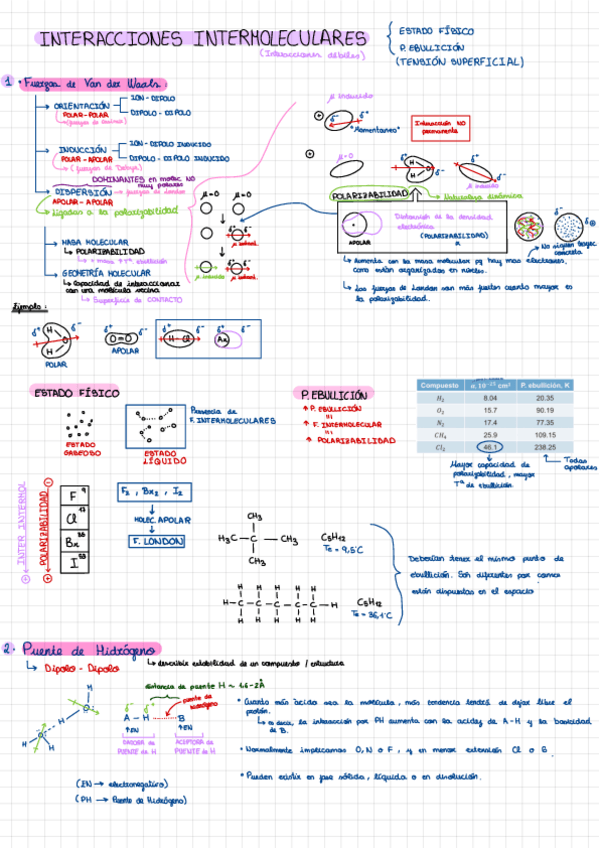 INTERACCIONES INTERMOLECULARES
(Interacciones débiles)
ESTADO FÍSICO
P. EBULLICIÓN
(TENSIÓN SUPERFICIAL)
1. Fuerzas de Van der Waals:
ORIENTACIÓN
POLAR - POLAR
ION - DIPOLO
DIPOLO - DIPOLO
INDUCCIÓN
POLAR - APOLAR
(fuerzas de Debye)
ION - DIPOLO INDUCIDO
DIPOLO - DIPOLO INDUCIDO
DOMINANTES en molec NO
muy polares
DISPERSIÓN
fuerzas de London
APOLAR - APOLAR
Ligadas a la polarizabilidad
MASA MOLECULAR
POLARIZABILIDAD
GEOMETRÍA MOLECULAR
Capacidad de interaccionar
con una molécula vecina
Superficie de CONTACTO
μ=0 μ=0
μ inducido
"Momentáneo"
Interacción NO
permanente
μ=0
H
O
H
μ inducido
POLARIZABILIDAD
Naturaleza dinámica
APOLAR
Distorsión de la densidad
electrónica
(POLARIZABILIDAD)
α
No siguen trayec.
concreta
Aumenta con la masa molecular pq hay más electrones,
como están organizados en niveles.
Las fuerzas de London son más fuertes cuanto mayor es
la polarizabilidad.
Ejemplo:
δ+ δ-
H
O
H
POLAR
O=O
APOLAR
H-Cl
Ar
ESTADO FÍSICO
ESTADO
GASEOSO
ESTADO
LÍQUIDO
Presencia de
F. INTERMOLECULARES
P. EBULLICIÓN
P. EBULLICIÓN
F. INTERMOLECULAR
POLARIZABILIDAD
Compuesto P. ebullición, K
H2 8.04 20.35
O2 15.7 90.19
N2 17.4 77.35
CH4 25.9 109.15
Cl2 46.1 238.25
Mayor capacidad de
polarizabilidad, mayor
Tª de ebullición.
Todas
apolares
INTER INTERMOL
POLARIZABILIDAD
F 9
Cl
Br 35
I 53
F2, Br2, I2
MOLEC. APOLAR
F. LONDON
CH3
H3C - C - CH3
CH3
C5H12
Te = 9,5°C
H H H H H
H-C-C-C-C-C-H
H H H H H
C5H12
Te = 36,1°C
Deberían tener el mismo punto de
ebullición. Son diferentes por como
están dispuestas en el espacio
2. Puente de Hidrógeno
Dipolo - Dipolo
describir estabilidad de un compuesto / estructura
distancia de puente H ~ 1.6-2Å
puente de
hidrógeno
A - H B
↑EN ↑EN
DADORA de
PUENTE de H
ACEPTORA de
PUENTE de H
(EN → electronegativo)
(PH → Puente de Hidrógeno)
• Cuanto más ácido sea la molécula, más tendencia tendrá de dejar libre el
protón.
es decir, la interacción por PH aumenta con la acidez de A-H y la basicidad
de B.
• Normalmente implicamos O, N o F, y en menor extensión Cl o S.
• Pueden existir en fase sólida, líquida o en disolución.